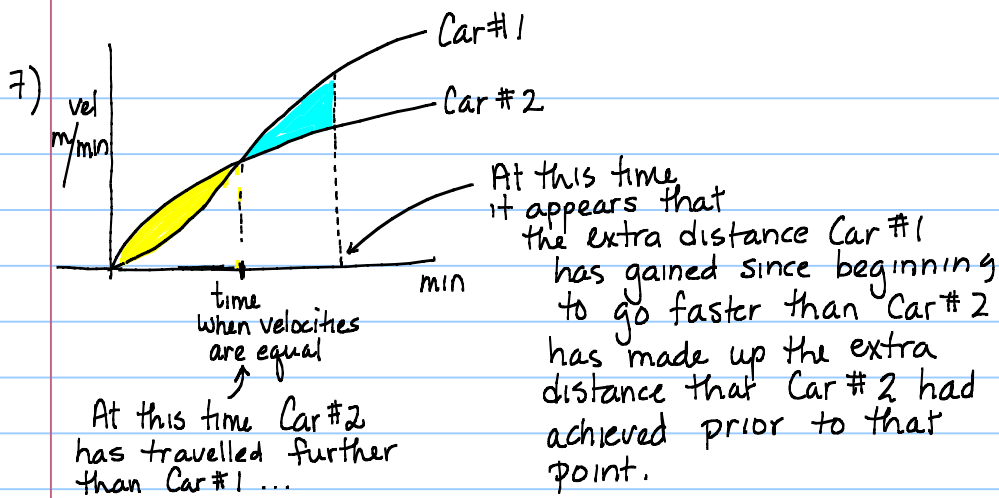 7)
vel
m/min
Car #1
Car #2
min
time
when velocities
are equal
At this time Car #2
has travelled further
than Car #1 ...
At this time
it appears that
the extra distance Car #1
has gained since beginning
to go faster than Car #2
has made up the extra
distance that Car #2 had
achieved prior to that
point.